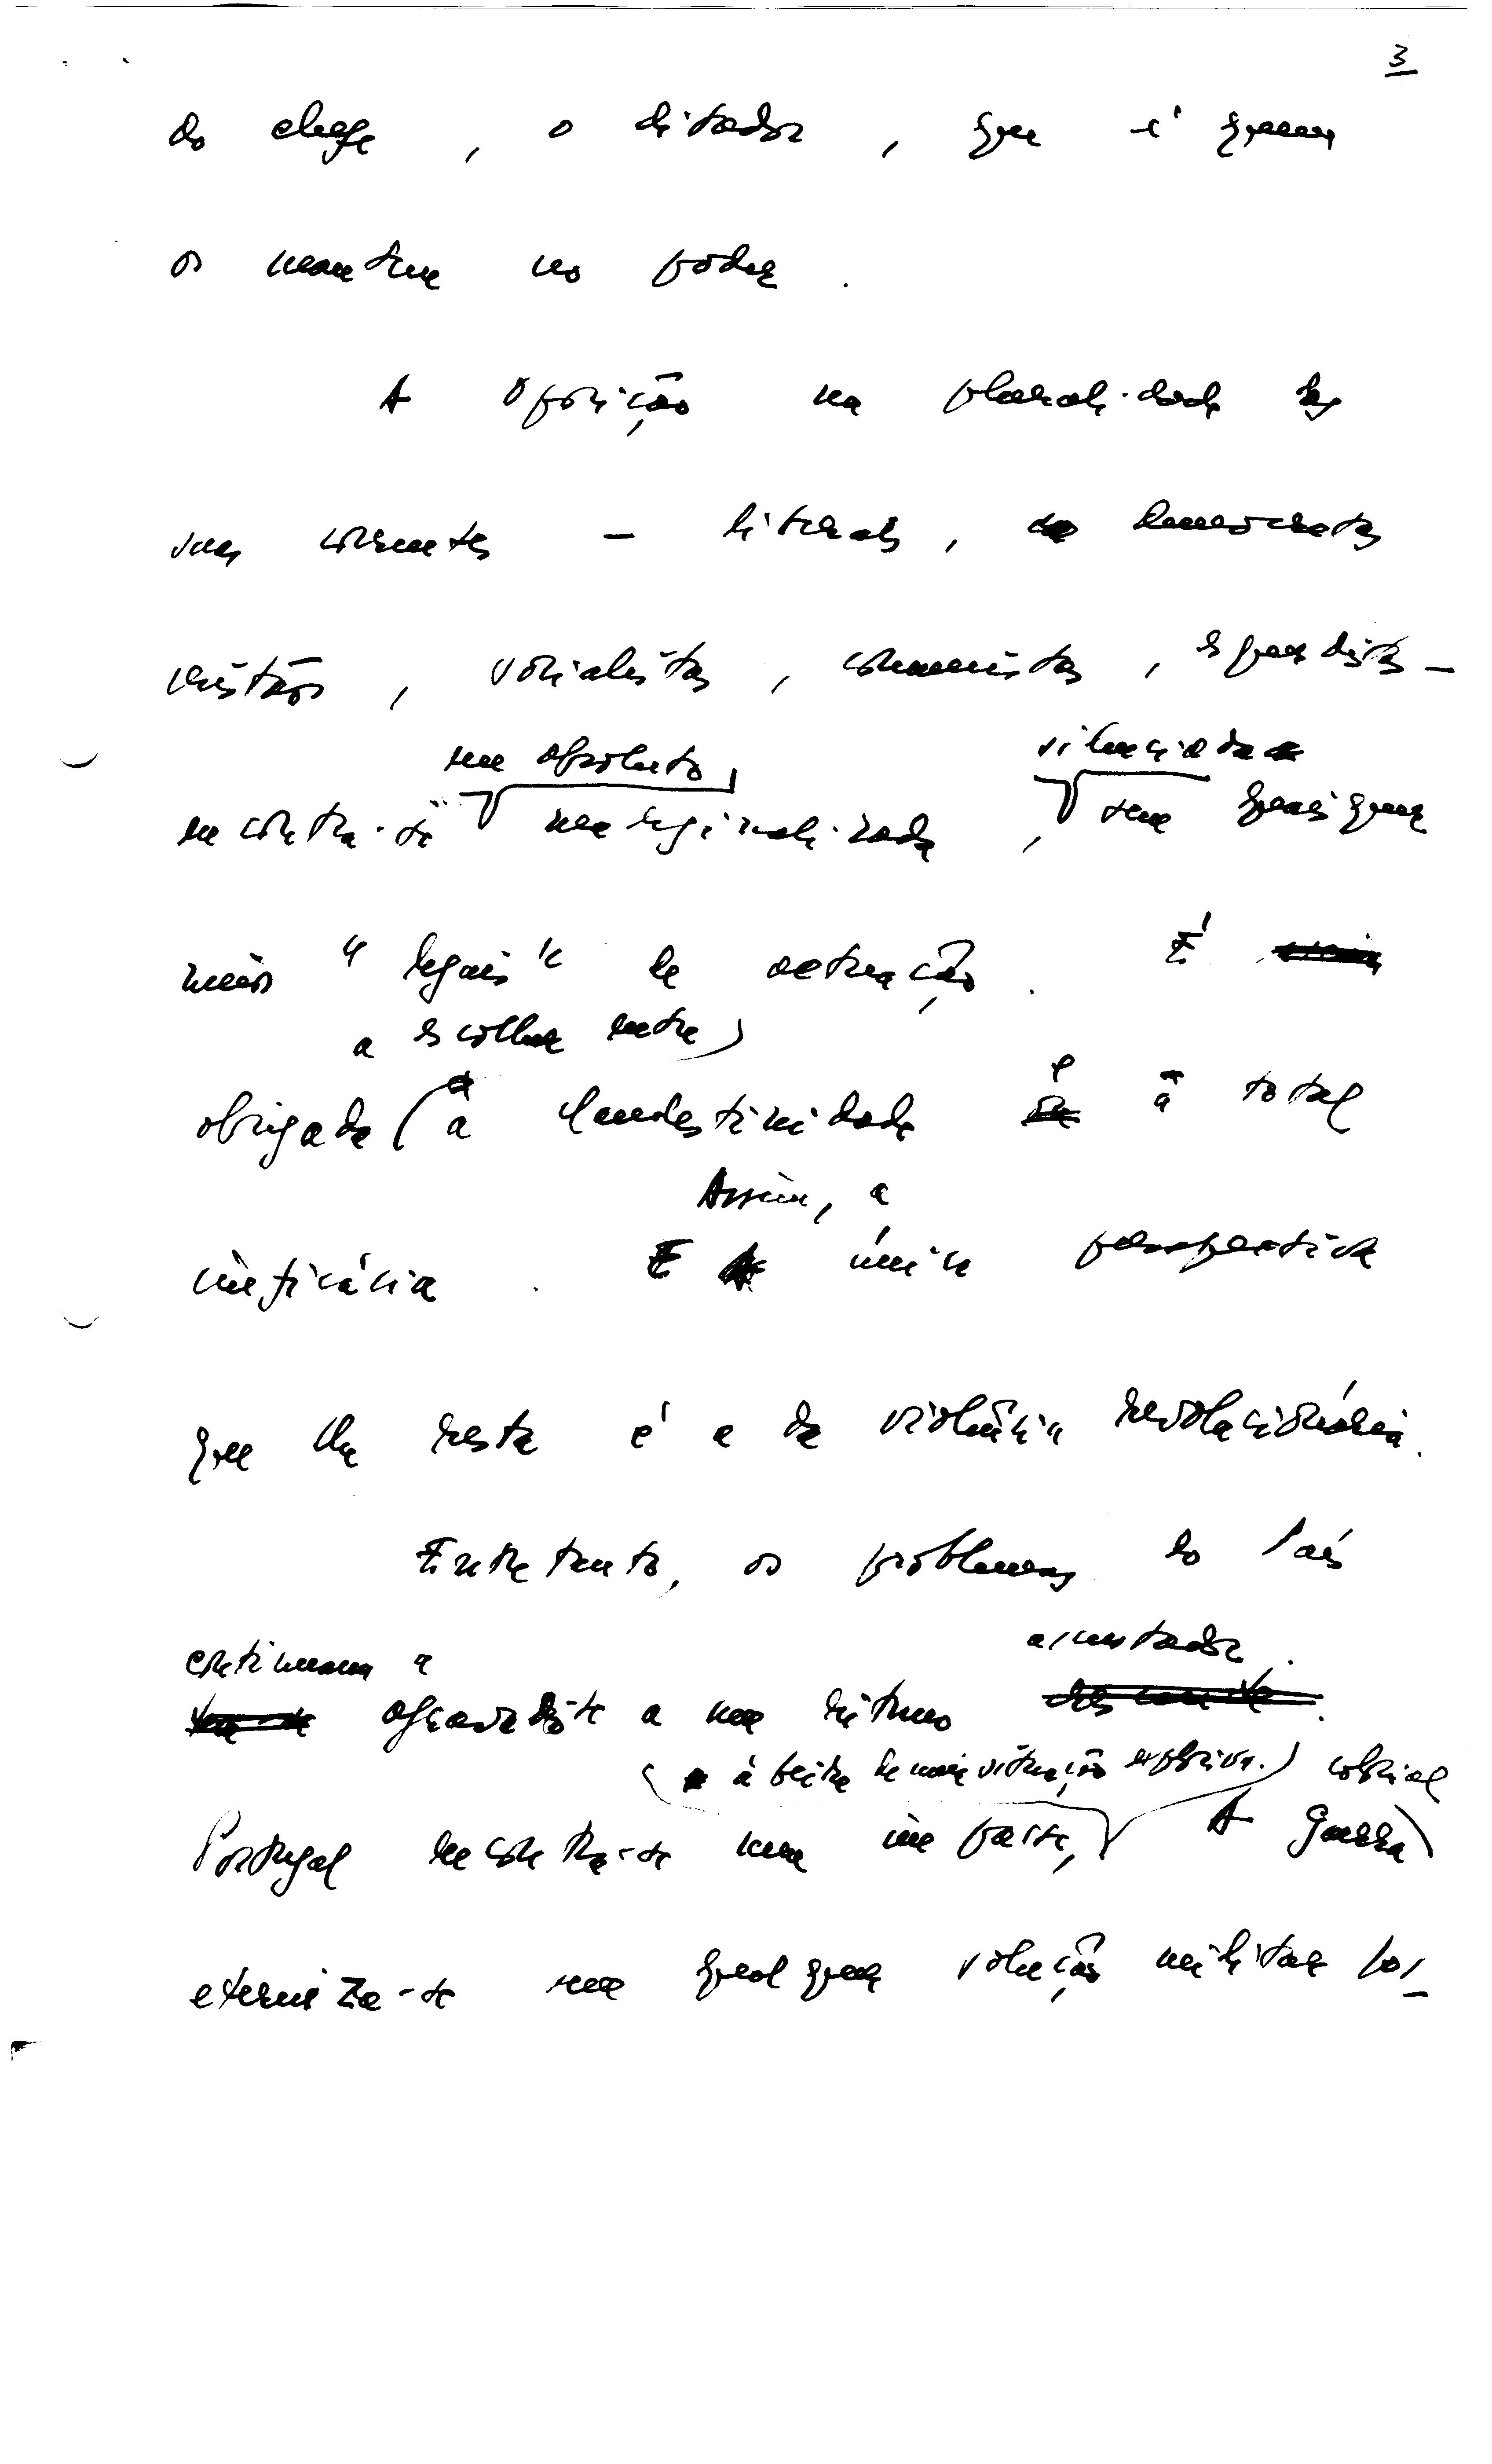 3
do chefe, o ditador, que é quem
os mantem no poder.
A Oposição na pluralidade das
suas correntes – liberais, democratas
cristãos, socialistas, comunistas, esquerdistas –
em absoluto, silenciada
encontra-se marginalizada, sem quaisquer
meios "legais" de actuação. É
a escolher entre
obrigada (a clandestinidade e a total
Assim, a
ineficácia. E única perspectiva
que lhe resta é a da violência revolucionária.
Entretanto, os problemas do País
continuam a assustador.
agravar-se a um ritmo
(à beira de uma situação explosiva.) colonial
Portugal encontra-se num impasse, A Guerra
eterniza-se sem qualquer solução militar pos-